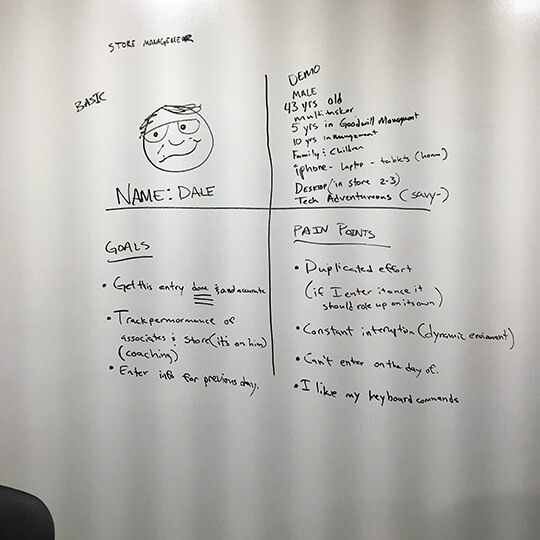 STORE MANAGEMER
BASIC
NAME: DALE
DEMO
MALE
43 yrs old
multitasker
5 yrs in Goodwill Management
10 yrs in management
Family & Children
iphone - laptop - tablets (home)
Desktop (in store 2-3)
Tech Adventureous (savy-)
GOALS
• Get this entry done & and accurate
• Track permormance of
associates & store (it's on him)
(coaching)
• Enter info for previous day.
PAIN POINTS
• Duplicated effort
(if I enter it once it
should role up on its own)
• Constant interuption (dynamic enviroment)
• Can't enter on the day of.
• I like my keyboard commands